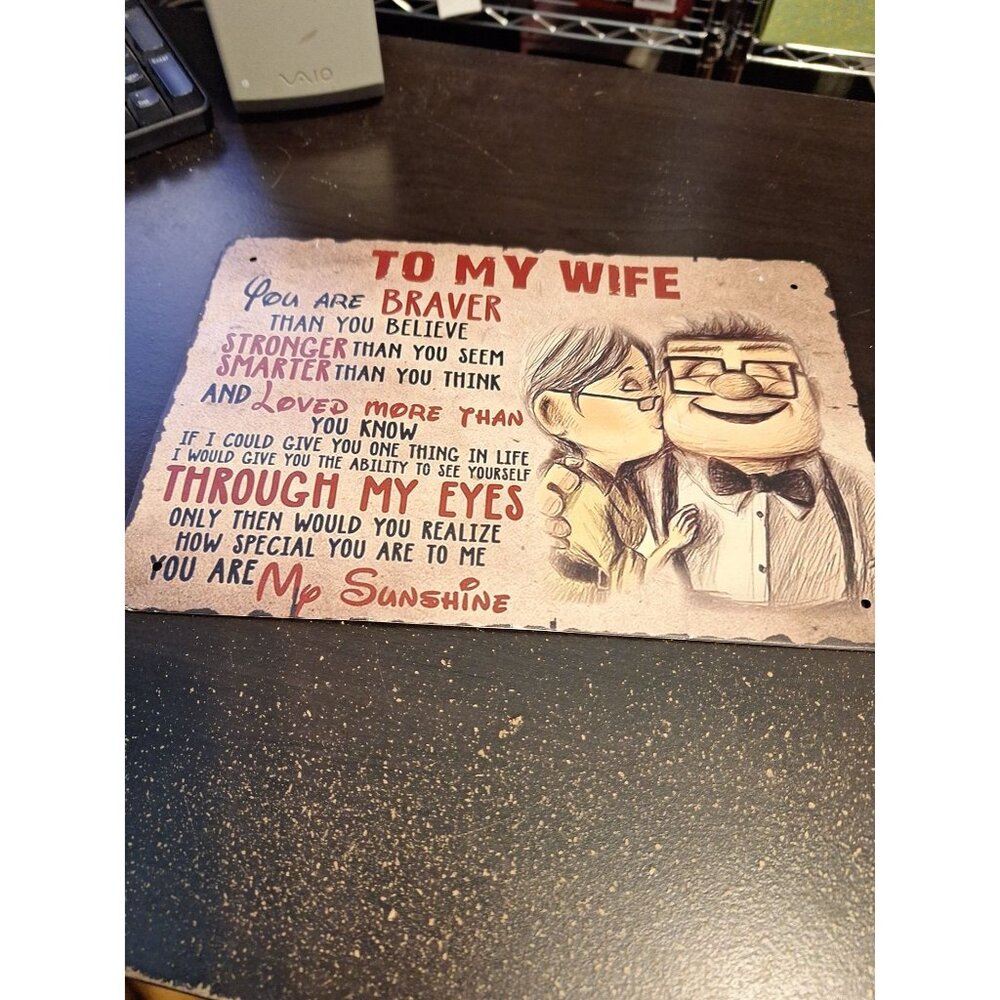 VAIO
TO MY WIFE
You ARE BRAVER
THAN YOU BELIEVE
STRONGER THAN YOU SEEM
SMARTER THAN YOU THINK
AND LOVED MORE THAN
YOU KNOW
IF I COULD GIVE YOU ONE THING IN LIFE
I WOULD GIVE YOU THE ABILITY TO SEE YOURSELF
THROUGH MY EYES
ONLY THEN WOULD YOU REALIZE
HOW SPECIAL YOU ARE TO ME
YOU ARE My SUNSHINE